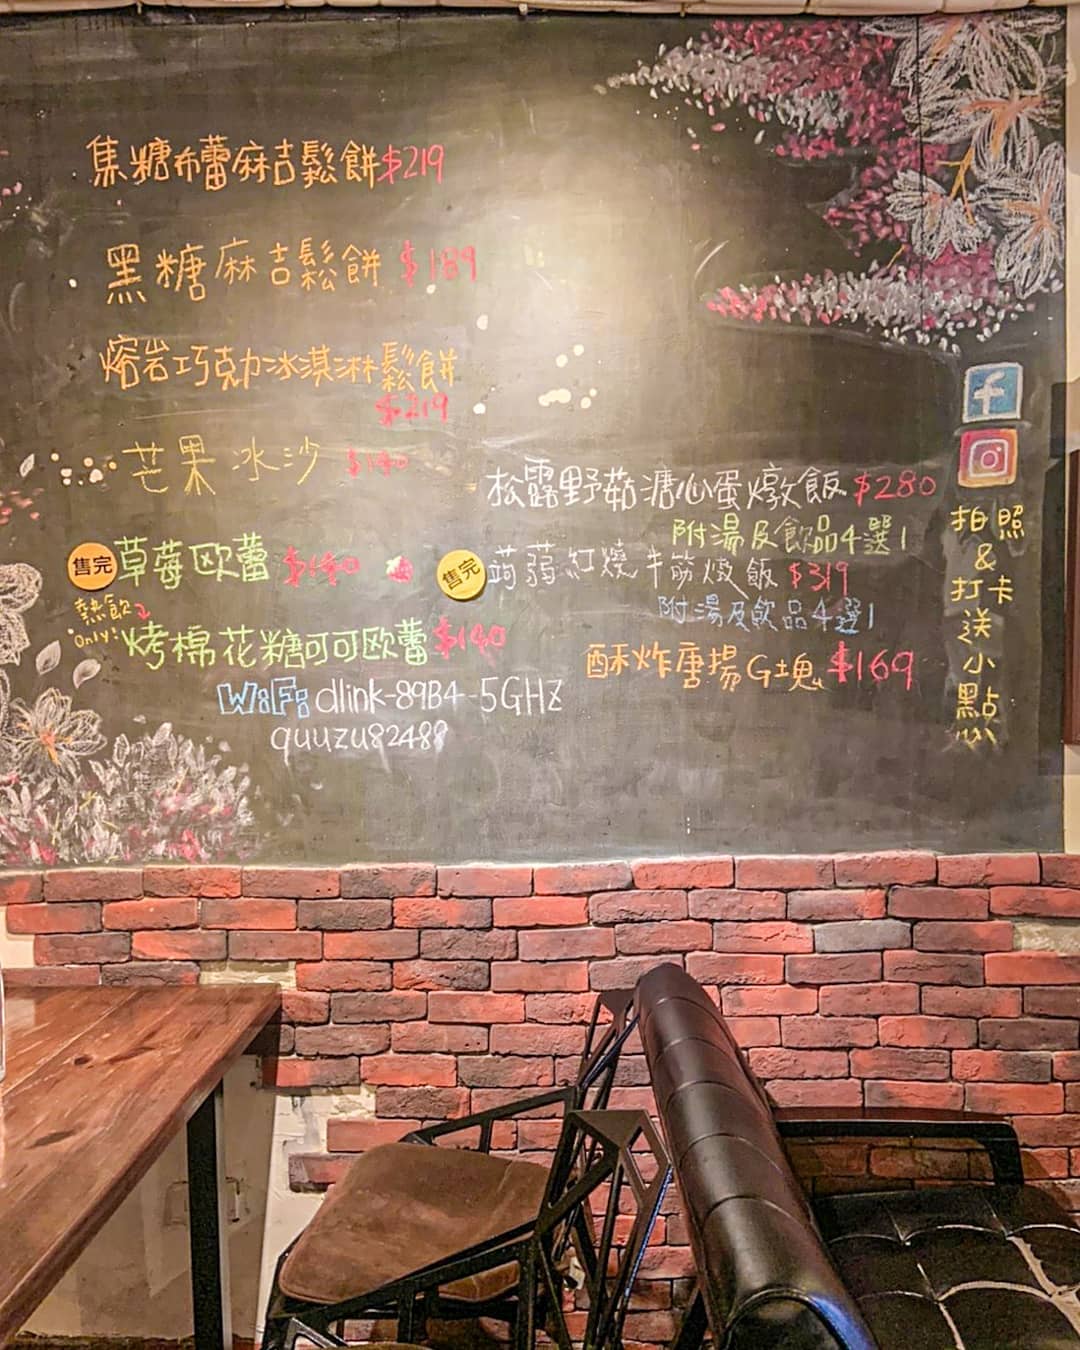 焦糖布蕾麻吉鬆餅$219
黑糖麻吉鬆餅 $189
熔岩巧克力冰淇淋鬆餅
$219
芒果冰沙 $180
售完 草莓欧蕾
熱飲
Only:
烤棉花糖可可欧蕾 $140
WiFi: dlink-89B4-5GHZ
quuzu82488
松露野菇溏心蛋燉飯 $280
附湯及飲品4選1
售完 蒟蒻紅燒牛筋燉飯 $319
附湯及飲品4選1
酥炸唐揚G塊 $169
拍照
&
打卡
送
小
點
心